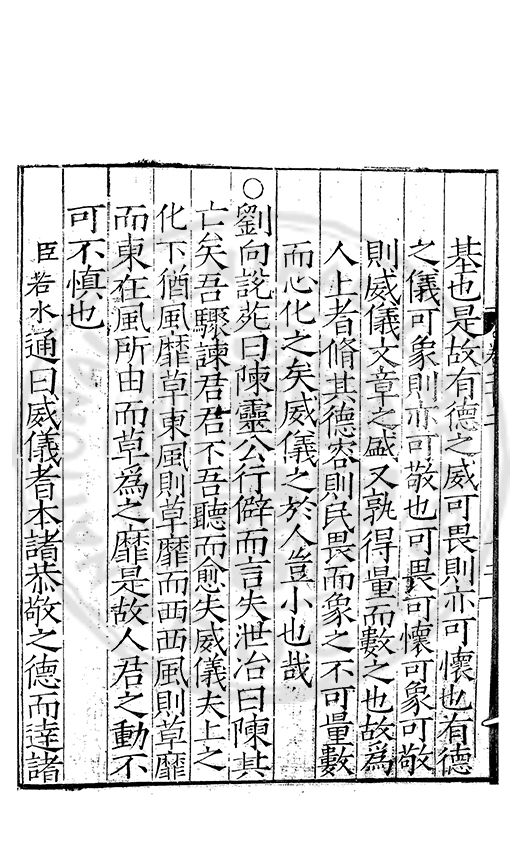 基也是故有德之威可畏則亦可懷也有德
之儀可象則亦可敬也可畏可懷可象可敬
則威儀文章之盛又孰得量而數之也故為
人上者脩其德容則民畏而象之不可量數
而心化之矣威儀之於人豈小也哉
○劉向說苑曰陳靈公行僻而言失泄冶曰陳其
亡矣吾驟諫君君不吾聽而愈失威儀夫上之
化下猶風靡草東風則草靡而西西風則草靡
而東在風所由而草為之靡是故人君之動不
可不慎也
臣若水通曰威儀者本諸恭敬之德而達諸